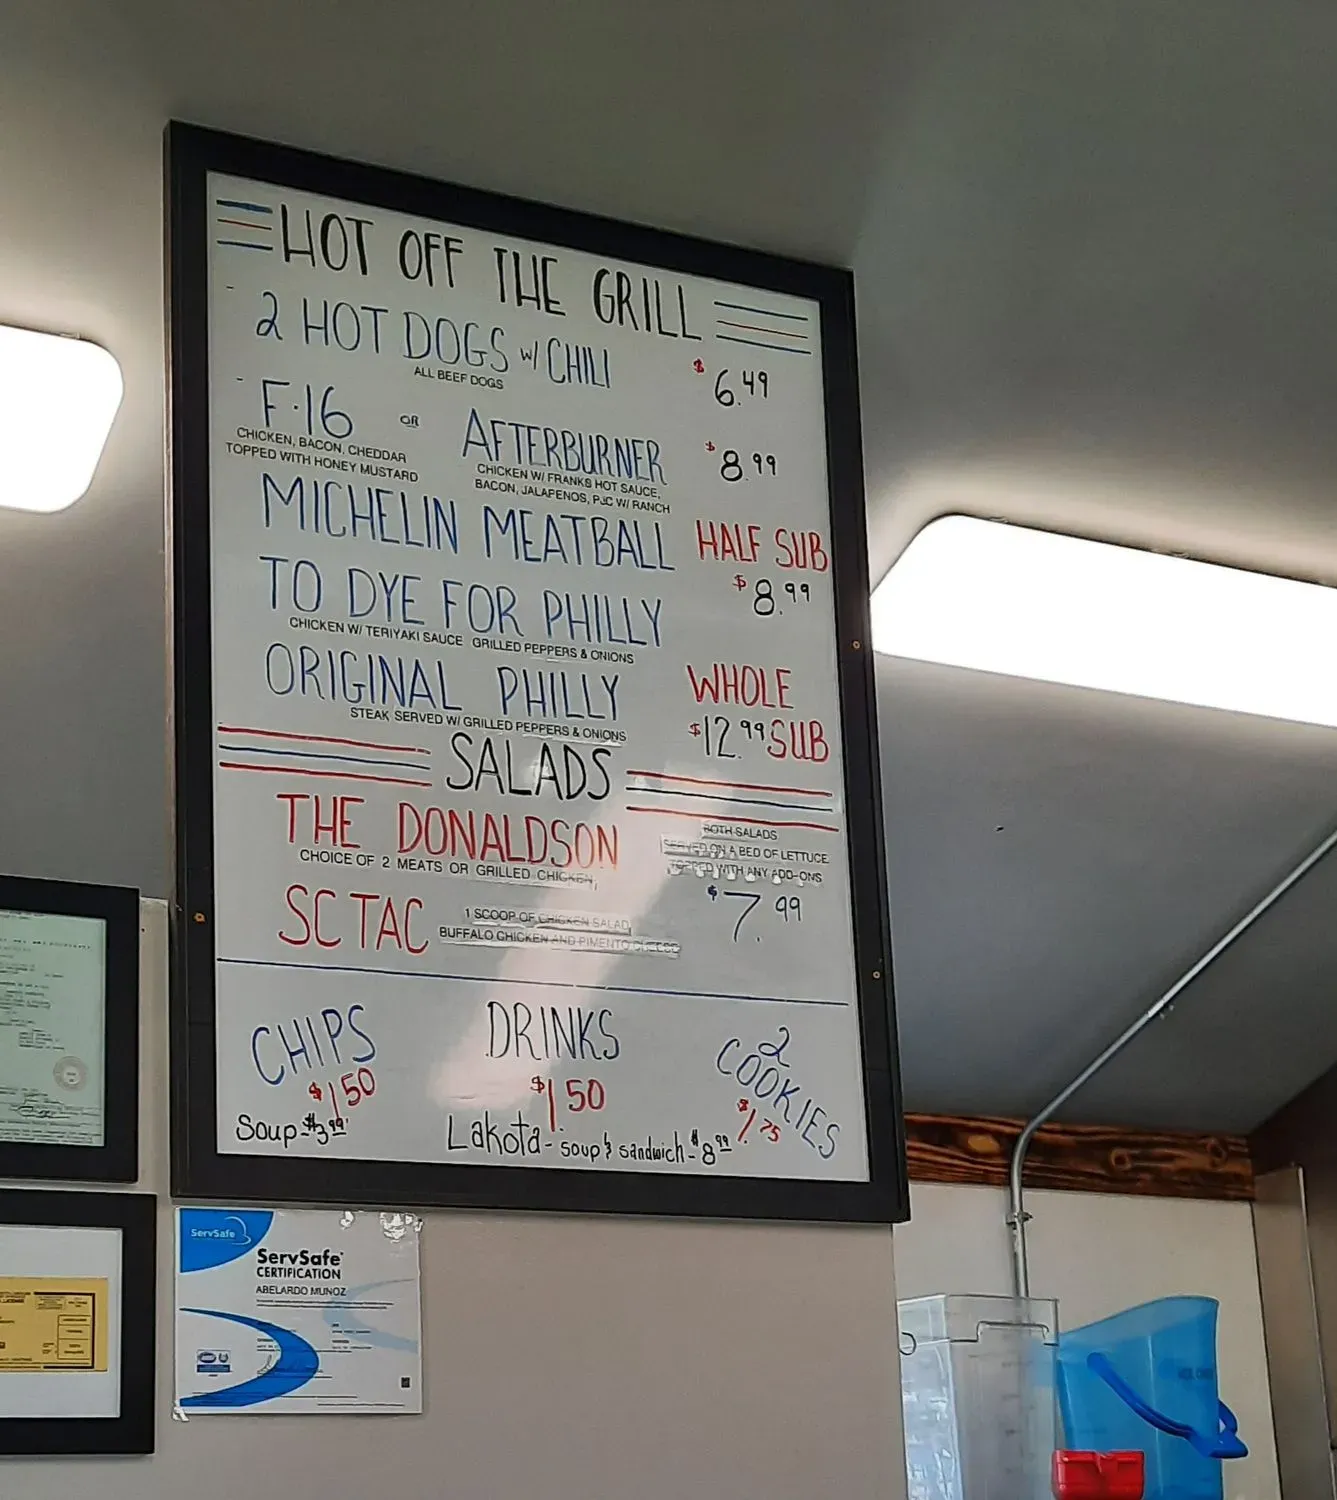 HOT OFF THE GRILL
- 2 HOT DOGS w/ CHILI $6.49
ALL BEEF DOGS
- F-16 OR AFTERBURNER $8.99
CHICKEN, BACON, CHEDDAR
TOPPED WITH HONEY MUSTARD
CHICKEN W/ FRANKS HOT SAUCE,
BACON, JALAPENOS, PJC W/ RANCH
MICHELIN MEATBALL HALF SUB
$8.99
TO DYE FOR PHILLY
CHICKEN W/ TERIYAKI SAUCE GRILLED PEPPERS & ONIONS
ORIGINAL PHILLY WHOLE
STEAK SERVED W/ GRILLED PEPPERS & ONIONS
$12.99 SUB
SALADS
THE DONALDSON
CHOICE OF 2 MEATS OR GRILLED CHICKEN,
BOTH SALADS
SERVED ON A BED OF LETTUCE
TOPPED WITH ANY ADD-ONS
$7.99
SCTAC
1 SCOOP OF CHICKEN SALAD,
BUFFALO CHICKEN AND PIMENTO CHEESE
CHIPS DRINKS 2 COOKIES
$1.50 $1.50 $1.75
Soup-$3.99 Lakota- soup & sandwich-$8.99
ServSafe
ServSafe
CERTIFICATION
ABELARDO MUNOZ